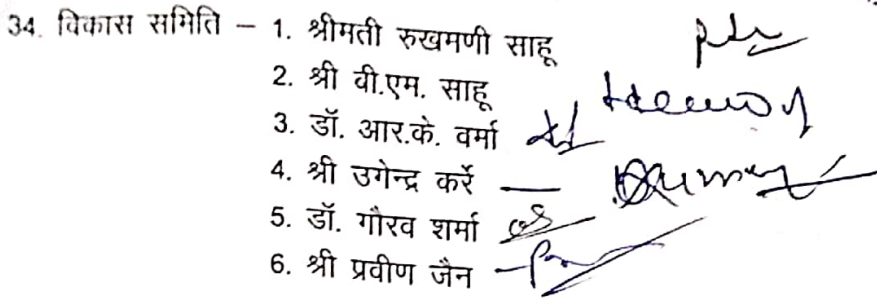 34. विकास समिति – 1. श्रीमती रुखमणी साहू
2. श्री वी.एम. साहू
3. डॉ. आर.के. वर्मा
4. श्री उगेन्द्र कर्रे
5. डॉ. गौरव शर्मा
6. श्री प्रवीण जैन